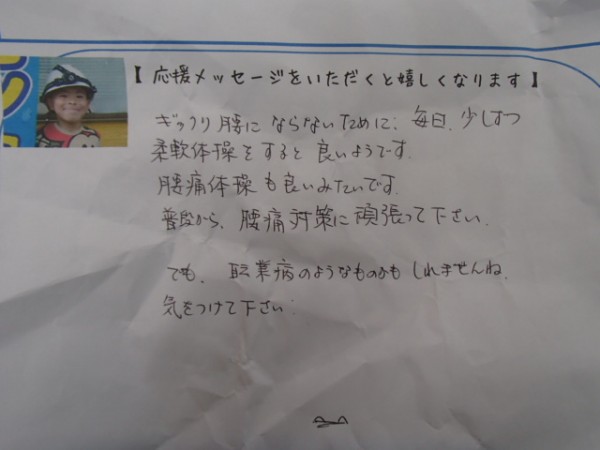 【応援メッセージをいただくと嬉しくなります】
ぎっくり腰にならないために、毎日、少しずつ
柔軟体操をすると良いようです。
腰痛体操も良いみたいです。
普段から、腰痛対策に頑張って下さい。
でも、職業病のようなものかもしれませんね。
気をつけて下さい。